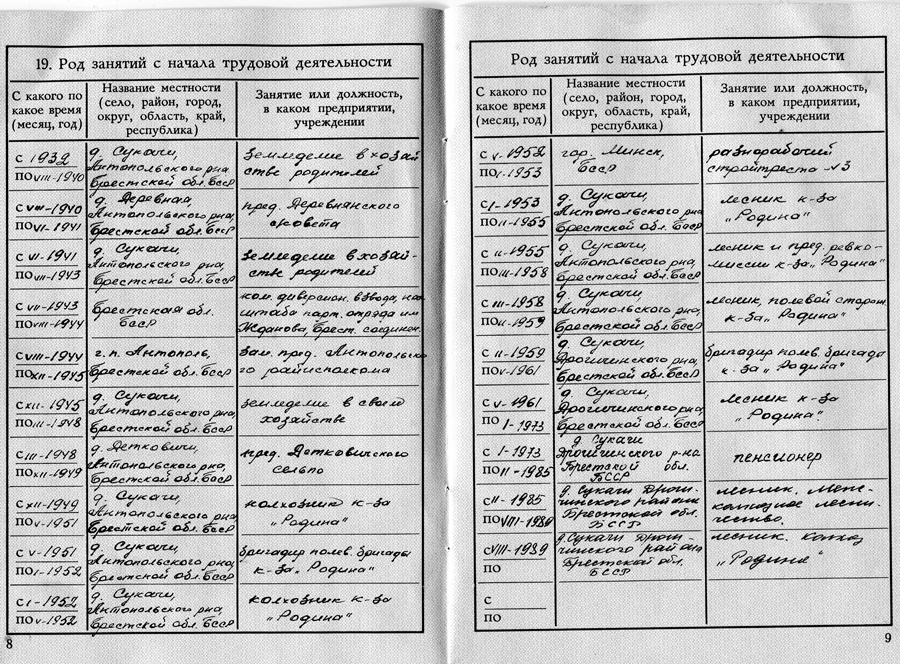 19. Род занятий с начала трудовой деятельности
С какого по какое время (месяц, год)
Название местности (село, район, город, округ, область, край, республика)
Занятие или должность, в каком предприятии, учреждении
с 1932
по VIII-1940
д. Сукачи,
Антопольского р-на,
Брестской обл. БССР
Земледелие в хозяй
стве родителей
с VIII-1940
по VI-1941
д. Деревная,
Антопольского р-на,
Брестской обл. БССР
пред. Деревнянского
с/совета
с VI-1941
по VII-1943
д. Сукачи,
Антопольского р-на,
Брестской обл. БССР
Земледелие в хозяй-
стве родителей
с VII-1943
по VIII-1944
Брестская обл.
БССР
ком. диверсион. взвода, нач.
штаба парт. отряда им.
Жданова, Брест. соединен.
с VIII-1944
по XII-1945
г. п. Антополь,
Брестской обл. БССР
Зам. пред. Антопольско
го райисполкома
с XII-1945
по III-1948
д. Сукачи,
Антопольского р-на,
Брестской обл. БССР
Земледелие в своем
хозяйстве
с III-1948
по XII-1949
д. Детковичи,
Антопольского р-на,
Брестской обл. БССР
пред. Детковичского
сельпо
с XII-1949
по V-1951
д. Сукачи,
Антопольского р-на,
Брестской обл. БССР
колхозник к-за
„Родина"
с V-1951
по I-1952
д. Сукачи,
Антопольского р-на,
Брестской обл. БССР
бригадир полев. бригады
к-за „Родина"
с I-1952
по V-1952
д. Сукачи,
Антопольского р-на,
Брестской обл. БССР
колхозник к-за
„Родина"
8
Род занятий с начала трудовой деятельности
С какого по какое время (месяц, год)
Название местности (село, район, город, округ, область, край, республика)
Занятие или должность, в каком предприятии, учреждении
с V-1952
по I-1953
гор. Минск,
БССР
разнорабочий
стройтреста №3
с I-1953
по II-1955
д. Сукачи,
Антопольского р-на
Брестской обл. БССР
лесник к-за
„Родина"
с II-1955
по III-1958
д. Сукачи,
Антопольского р-на,
Брестской обл. БССР
лесник и пред. ревко-
миссии к-за „Родина"
с III-1958
по II-1959
д. Сукачи,
Антопольского р-на,
Брестской обл. БССР
лесник, полевой сторож
к-за „Родина"
с II-1959
по V-1961
д. Сукачи,
Дрогичинского р-на,
Брестской обл. БССР
бригадир полев. бригады
к-за „Родина"
с V-1961
I-1973
д. Сукачи,
Дрогичинского р-на,
Брестской обл. БССР
лесник к-за
„Родина"
с I-1973
по II-1985
д. Сукачи
Дрогичинского р-на
Брестской обл.
БССР
пенсионер
с II-1985
по VIII-1989
д. Сукачи Дроги-
чинского района
Брестской обл.
БССР
лесник. Меж-
колхозное лесни-
чество.
с VIII-1989
по
д. Сукачи Дроги-
чинского района
Брестской обл.
БССР
лесник. колхоз
„Родина"
с
по
9